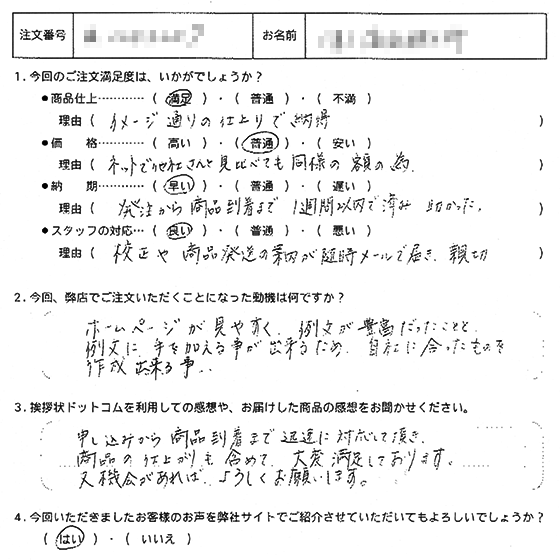 注文番号 お名前
1.今回のご注文満足度は、いかがでしょうか?
●商品仕上………( 満足 )・( 普通 )・( 不満 )
理由( イメージ通りの仕上りで納得 )
●価　格………( 高い )・( 普通 )・( 安い )
理由( ネットで他社さんと見比べても同様の額の為. )
●納　期………( 早い )・( 普通 )・( 遅い )
理由( 発注から商品到着まで 1週間以内で済み 助かった。 )
●スタッフの対応…( 良い )・( 普通 )・( 悪い )
理由( 校正や商品発送の案内が随時メールで届き、親切 )
2.今回、弊店でご注文いただくことになった動機は何ですか?
ホームページが見やすく、例文が豊富だったことと、
例文に手を加える事が出来るため、自社に合ったものを
作成出来る事..
3.挨拶状ドットコムを利用しての感想や、お届けした商品の感想をお聞かせください。
申し込みから商品到着まで迅速に対応して頂き、
商品の仕上がりも含めて、大変満足しております。
又機会があれば、よろしくお願いします。
4.今回いただきましたお客様のお声を弊社サイトでご紹介させていただいてもよろしいでしょうか?
( はい )・( いいえ )